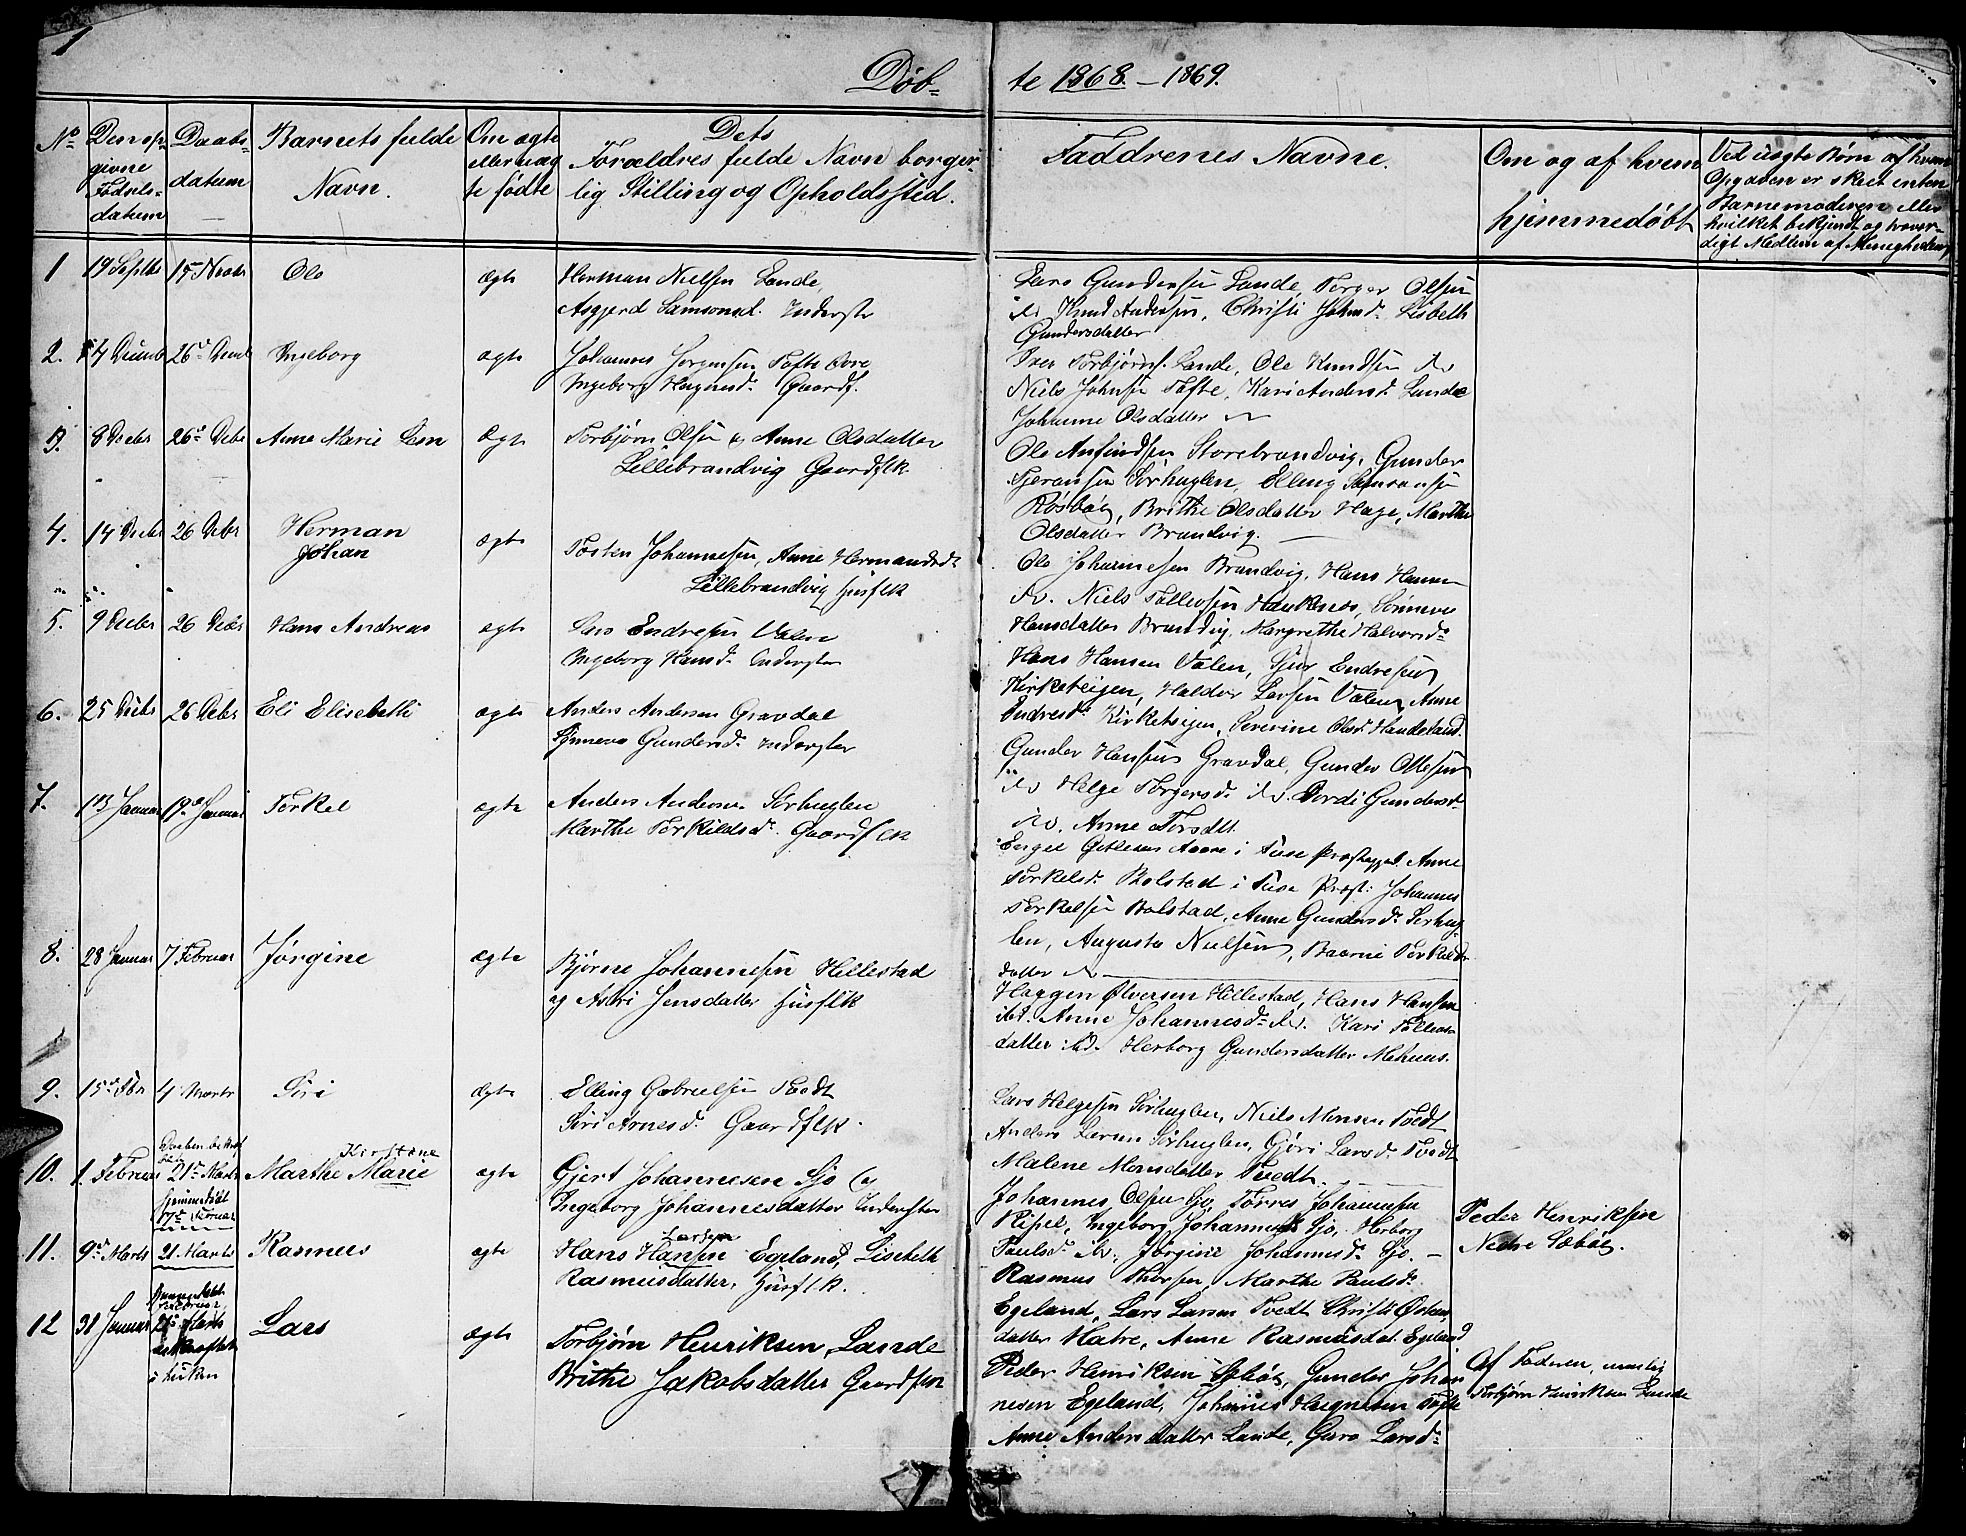 1
Døb-
te 1868. - 1869.
No
Den op-
givne
Fødsels-
datum
Daabs-
datum
Barnets fulde
Navn.
Om ægte
eller uæg
te fødte
Dets
Forældres fulde Navn borger-
lig Stilling og Opholdssted.
Faddrenes Navne.
Om og af hvem
hjemmedøbt
Ved uægte Børn af hvem
Opgaven er skeet enten
Barnemoderen eller
hvilket bekjendt og trover-
digt Medlem af Menigheden
1 19 Septbr 15 Novbr Ole ægte Herman Nielsen Lande,
Asgjerd Samsonsd. Inderster
Lars Gundersen Lande, Torger Olsen
Knud Andersen, Christi Johnsd. Lisbeth
Gundersdatter
2. 4 Decemb 26 Decmb Ingeborg ægte Johannes Jørgensen Tofte øvre
Ingeborg Hagensd. Gaardf.
Iver Torbjørns. Lande, Ole Knudsen
Niels Johnsen Tofte, Kari Andersd. Lande
Johanne Olsdatter
3. 8 Decbr 26 Debr Anne Marie Ægte Torbjørn Olsen & Anne Olsdatter
Lillebrandvig Gaardflk.
Ole Anfindsen Storebrandvig, Gunder
Sørhuglen, Elling Samsonsen
Røsbøe, Brithe Olsdatter Hage, Marthe
Olsdatter Brandvig.
4. 14 Decbr 26 Debr Herman
Johan
ægte Tosten Johannesen, Anne Hermansdt
Lillebrandvig Husflk
Ole Johannesen Brandvig, Hans Hansen
Niels Tollevsen Sønneve
Hansdatter Brandvig, Margrethe Halvorsd.
5. 9 Decbr 26 Debr Hans Andreas ægte Lars Endresen Valen
Ingeborg Hansd. Inderster
Hans Hansen Valen, Sjur Endresen
Kirketeigen, Haldor Larsen Valen, Anne
Endresd. Kirketeigen, Severine Olsd. Handeland.
6. 25 Decbr 26 Debr Eli Elisabeth ægte Anders Andersen Gravdal
Synneva Gundersd. Inderster
Gunder Hansen Gravdal, Gunder Ottesen
Helge Torgersd. Dordi Gundersd.
Anne
7. 13 Januar 19 Januar Torkel ægte Anders Andersen Sørhuglen
Marthe Torkildsd. Gaardflk
Engel Aaase i Præstegjæld. Anne
Torkelsd. Bolstad i Præst. Johannes
Torkelsen Bolstad, Anne Gundersd. Sørhug-
len, Augusta Nielsen, Torkild
datter
8. 28 Januar 7 Februar Jørgine ægte Bjørne Johannesen Hillestad
og Astri Jensdatter Husflk
Haggen Ølversen Hillestad, Hans Hansen
ibd. Anne Johannesd. Kari Tollevs
datter ibd. Herborg Gundersdatter Mehuus.
9. 15 Fbr 4 Marts Siri Ægte Elling Gabrielsen Tvedt
Siri Arnesd. Gaardflk.
Lars Helgesen Sørhuglen, Niels Monsen Tvedt
Anders Larsen Sørhuglen, Gjøri Larsd. Tvedt
Malene Monsdatter Tvedt.
10. 1 Februar Daaben bekræf
tet
21 Marts
hjemmedøbt
17 Februar
Kirstene
Marthe Marie ægte Gjert Johannesen Sjo og
Ingeborg Johannesdatter Inderster
Johannes Olsen Sjo, Torres Johannesen
Ripel, Ingeborg Johannesd. Sjo, Herborg
Paulsd. Jørgine Johannesd. Sjo. -
Peder Henriksen
Nedre Sæbøe.
11. 9 Marts 21. Marts Rasmus ægte Larsen
Hans Hansen Egeland, Lisebeth
Rasmusdatter, Husflk.
Rasmus Thorsen, Marthe Paulsd.
Egeland, Lars Larsen Tvedt Christi Østens
datter Hatre, Anne Rasmusdat. Egeland
12 31 Januar hjemmedøbt
Februar
21 Marts
bekræftet
i kirken
Lars ægte Torbjørn Henriksen, Lande
Brithe Jakobsdatter Gaardfolk
Peder Henriksen Sæbøe, Gunder Johan
nesen Egeland, Johannes Hagnesen Tofte
Anne Andersdatter Lande, Guro Larsd.
Af Faderen, nemlig
Torbjørn Henriksen Lande